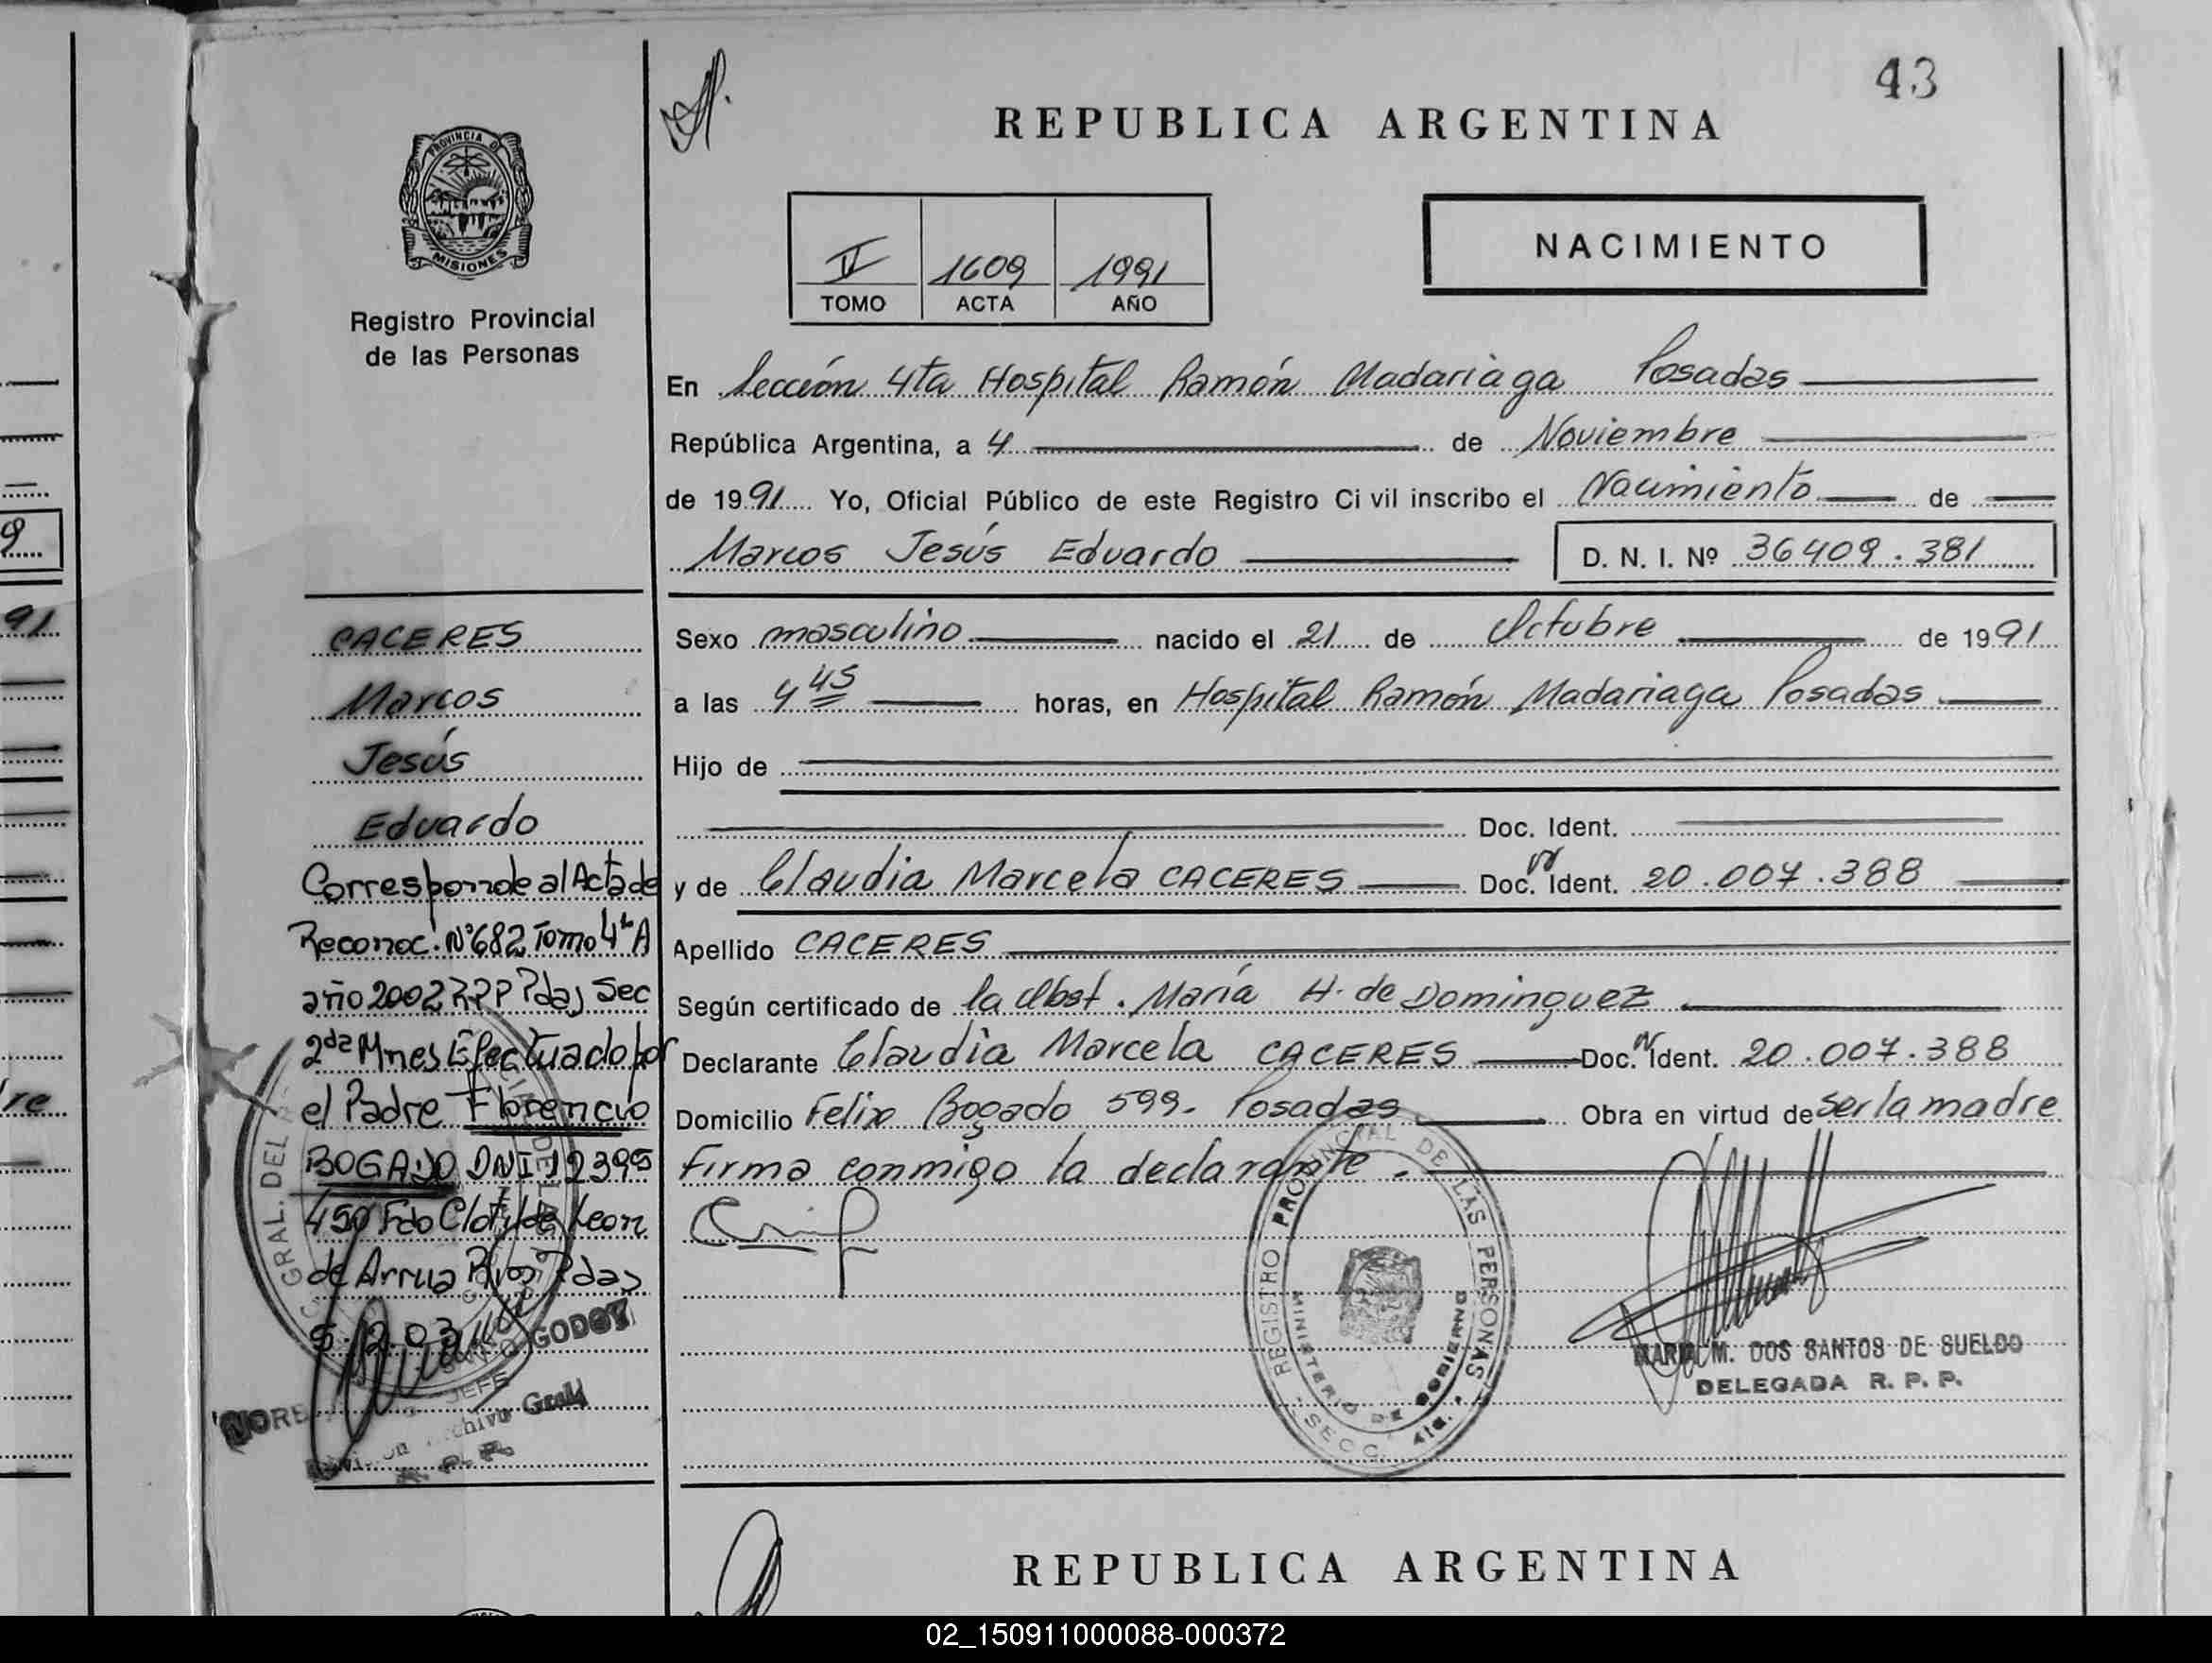 43
REPUBLICA ARGENTINA
PROVINCIA DE
MISIONES
Registro Provincial
de las Personas
NACIMIENTO
1609 1991
TOMO ACTA AÑO
En Sección 4ta Hospital Ramón Madariaga Posadas
República Argentina, a 4 de Noviembre
de 1991 Yo, Oficial Público de este Registro Civil inscribo el Nacimiento de
Marcos Jesús Eduardo D. N. I. Nº 36409.381
Sexo masculino nacido el 21 de Octubre de 1991
a las 4 45 horas, en Hospital Ramón Madariaga Posadas
Hijo de
Doc. Ident.
y de Claudia Marcela CACERES Doc. Ident. 20.007.388
Apellido CACERES
Según certificado de la Obst. María H. de Dominguez
Declarante Claudia Marcela CACERES Doc. Ident. 20.007.388
Domicilio Felix Bogado 599. Posadas Obra en virtud de ser la madre
Firma conmigo la declarante.
CACERES
Marcos
Jesús
Eduardo
Corresponde al Acta de
Reconoc. Nº 682 Tomo 4to A
año 2002 RPP Pdas Sec
2da Mnes Efectuado por
el Padre Florencio
BOGADO DNI 12395
450 Fdo Clotilde Leon
de Arrua Rios Pdas
5.2.03
GODOY
JEFE
Archivo Gral
REGISTRO PROVINCIAL DE LAS PERSONAS
MINISTERIO DE GOBIERNO
SECC. 4ta.
MARIA M. DOS SANTOS DE SUELDO
DELEGADA R. P. P.
REPUBLICA ARGENTINA
02_150911000088-000372